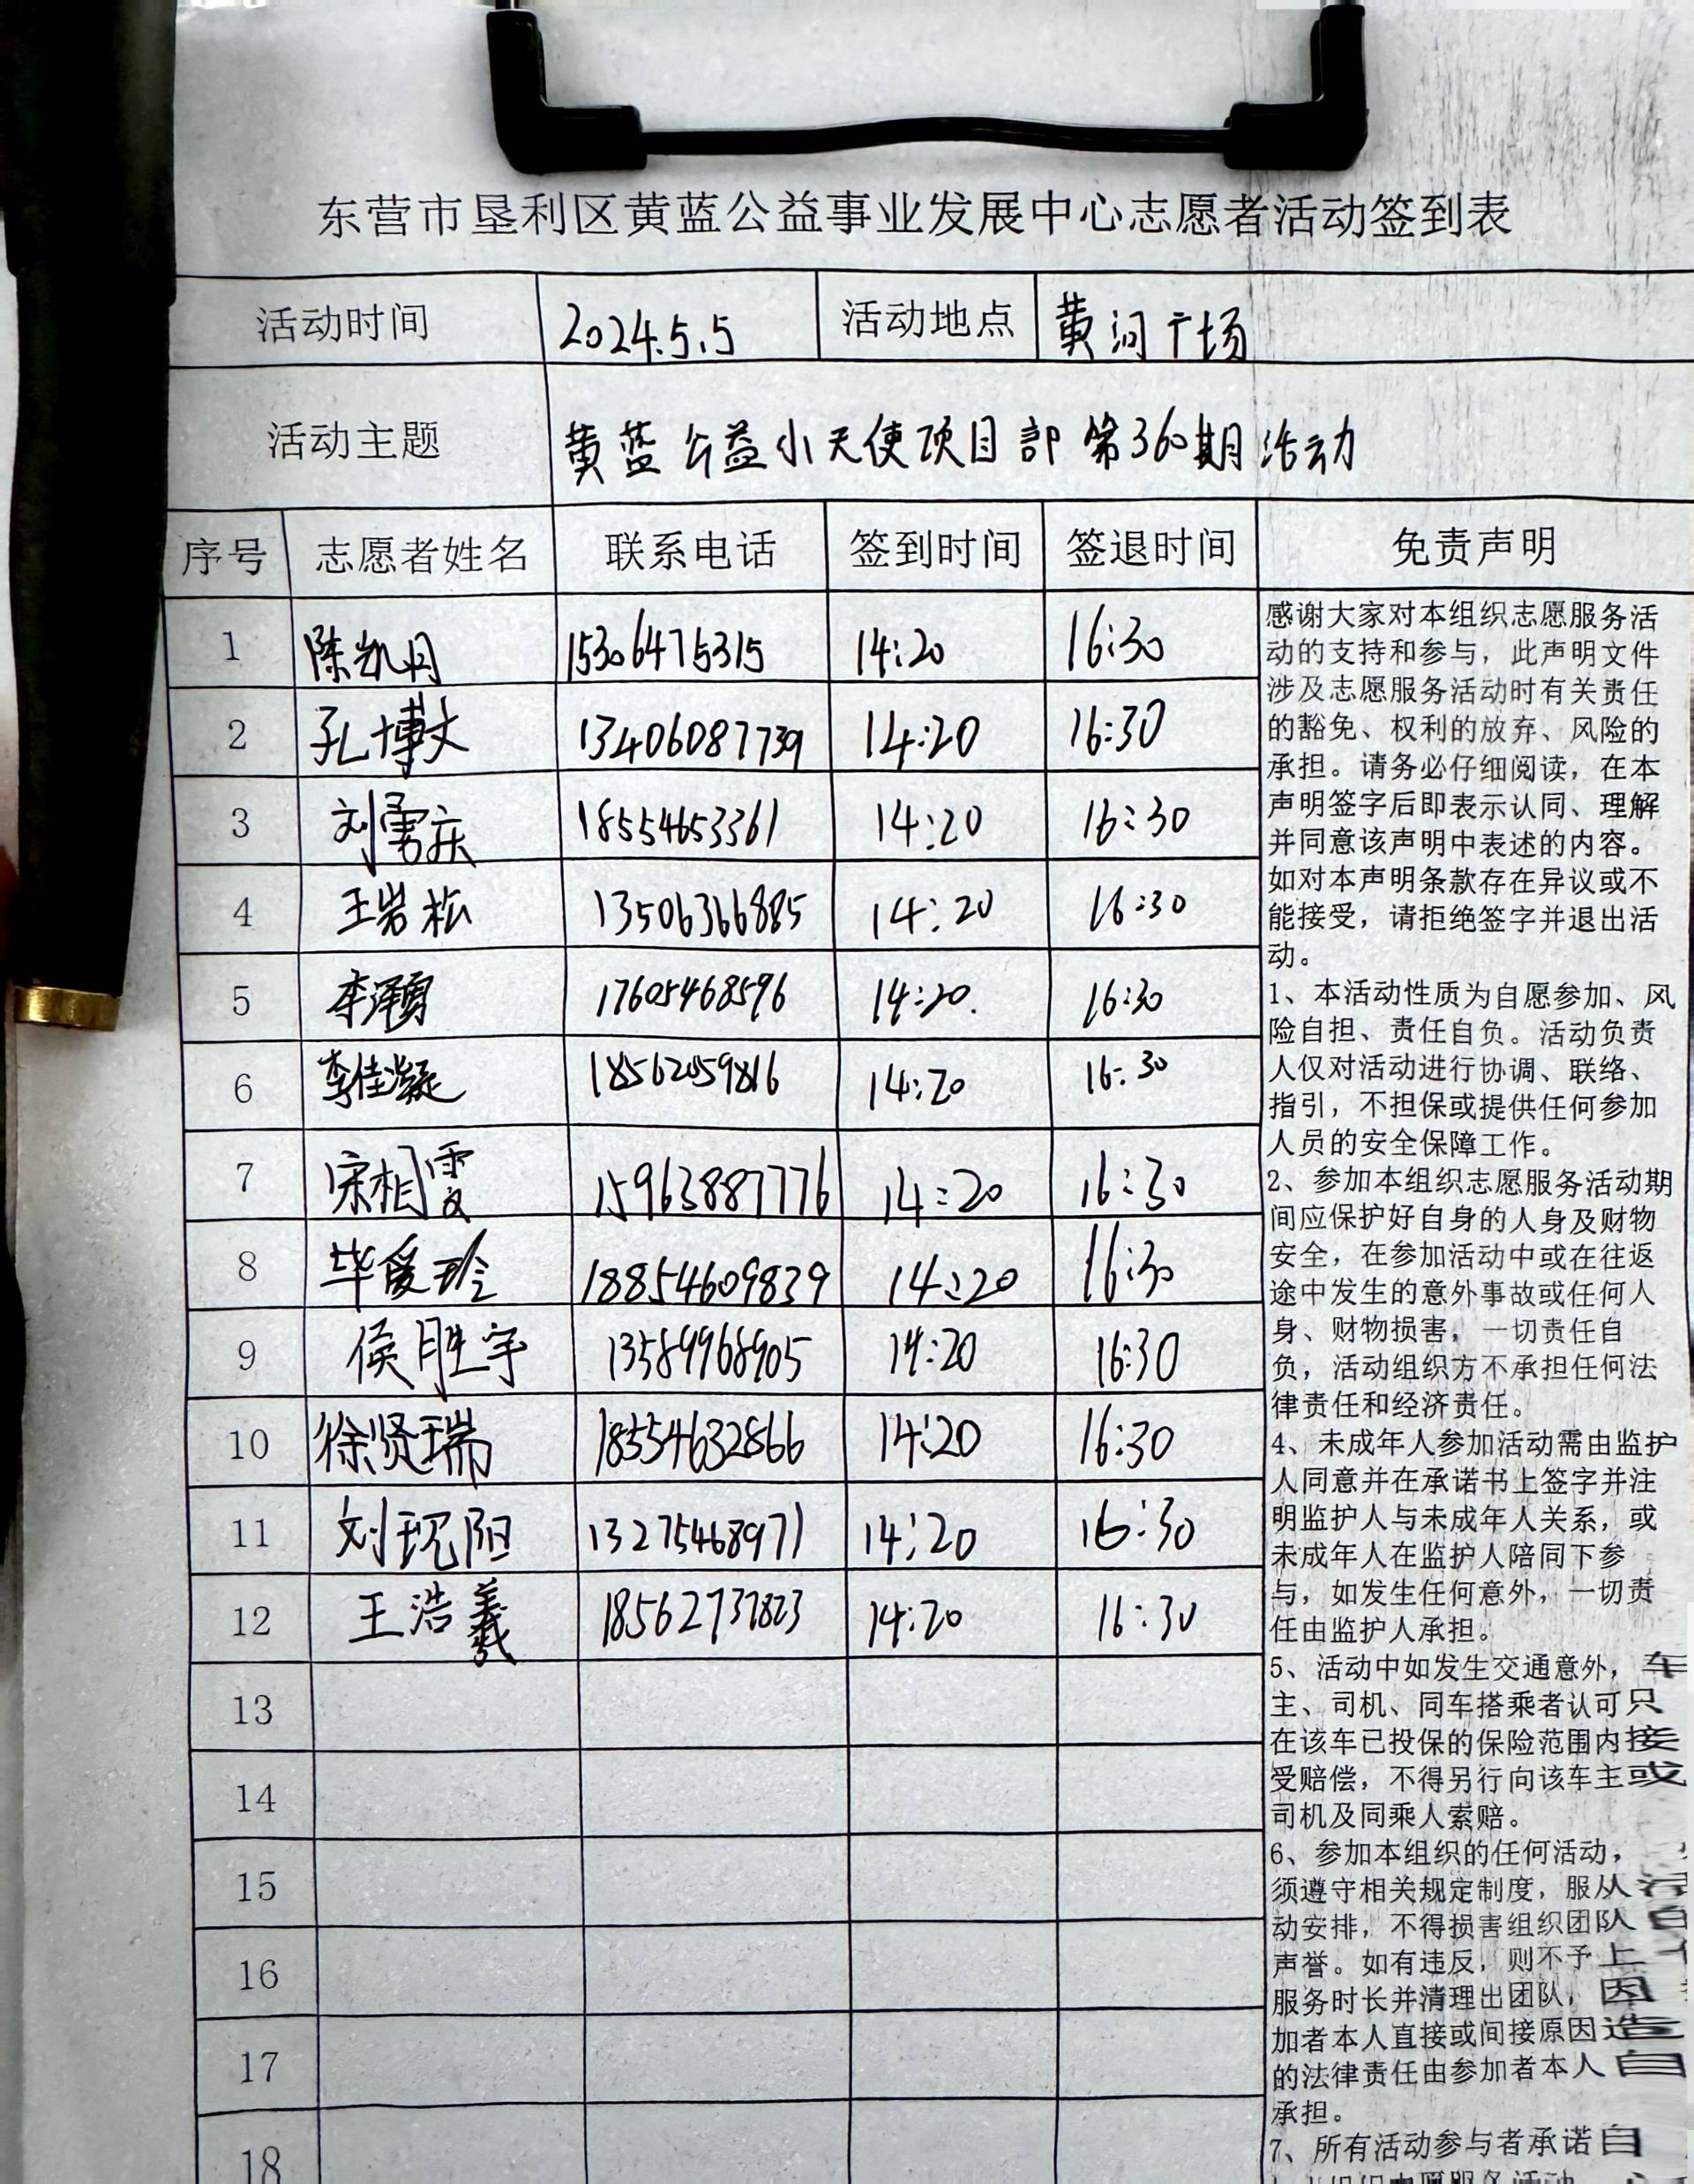 东营市垦利区黄蓝公益事业发展中心志愿者活动签到表
活动时间 2024.5.5 活动地点 黄河广场
活动主题 黄蓝公益小天使项目部第360期活动
序号 志愿者姓名 联系电话 签到时间 签退时间 免责声明
1 陈凯月 15306475315 14:20 16:30
2 孔博文 13406087739 14:20 16:30
3 刘雪庆 18554653361 14:20 16:30
4 王岩松 13506366885 14:20 16:30
5 李泽勇 17605468596 14:20. 16:30
6 李佳凝 18562059816 14:20 16:30
7 宋相雯 15963887776 14:20 16:30
8 毕爱玲 18854609839 14:20 16:30
9 侯胜宇 13589968905 14:20 16:30
10 徐贤瑞 18554632866 14:20 16:30
11 刘现阳 13275468971 14:20 16:30
12 王浩羲 18562737823 14:20 16:30
13
14
15
16
17
18
感谢大家对本组织志愿服务活
动的支持和参与，此声明文件
涉及志愿服务活动时有关责任
的豁免、权利的放弃、风险的
承担。请务必仔细阅读，在本
声明签字后即表示认同、理解
并同意该声明中表述的内容。
如对本声明条款存在异议或不
能接受，请拒绝签字并退出活
动。
1、本活动性质为自愿参加、风
险自担、责任自负。活动负责
人仅对活动进行协调、联络、
指引，不担保或提供任何参加
人员的安全保障工作。
2、参加本组织志愿服务活动期
间应保护好自身的人身及财物
安全，在参加活动中或在往返
途中发生的意外事故或任何人
身、财物损害，一切责任自
负，活动组织方不承担任何法
律责任和经济责任。
4、未成年人参加活动需由监护
人同意并在承诺书上签字并注
明监护人与未成年人关系，或
未成年人在监护人陪同下参
与，如发生任何意外，一切责
任由监护人承担。
5、活动中如发生交通意外，车
主、司机、同车搭乘者认可只
在该车已投保的保险范围内接
受赔偿，不得另行向该车主或
司机及同乘人索赔。
6、参加本组织的任何活动，
须遵守相关规定制度，服从活
动安排，不得损害组织团队
声誉。如有违反，则不予上
服务时长并清理出团队，因
加者本人直接或间接原因造
的法律责任由参加者本人自
承担。
7、所有活动参与者承诺自